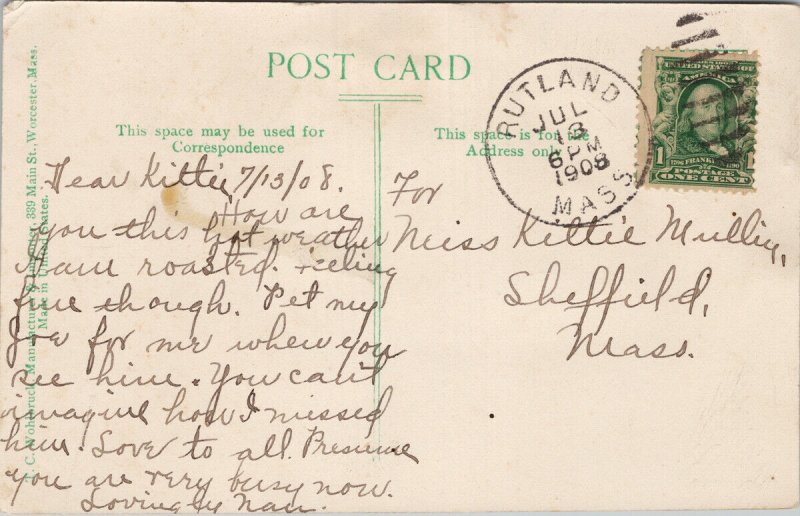 POST CARD
This space may be used for
Correspondence
This space is for the
Address only
RUTLAND
JUL
13
6 PM
1908
MASS
UNITED STATES OF
AMERICA
1
FRANKLIN
POSTAGE
ONE CENT
Dear Kittie, 7/13/08.
How are
you this hot weather
I am roasted. Feeling
fine though. Pet my
Joe for me when you
see him. You can't
imagine how I missed
him. Love to all. Presume
you are very busy now.
Lovingly Nan.
For
Miss Kittie Mullin,
Sheffield,
Mass.
Manufacturer & 339 Main St., Worcester, Mass.
Made in United States.